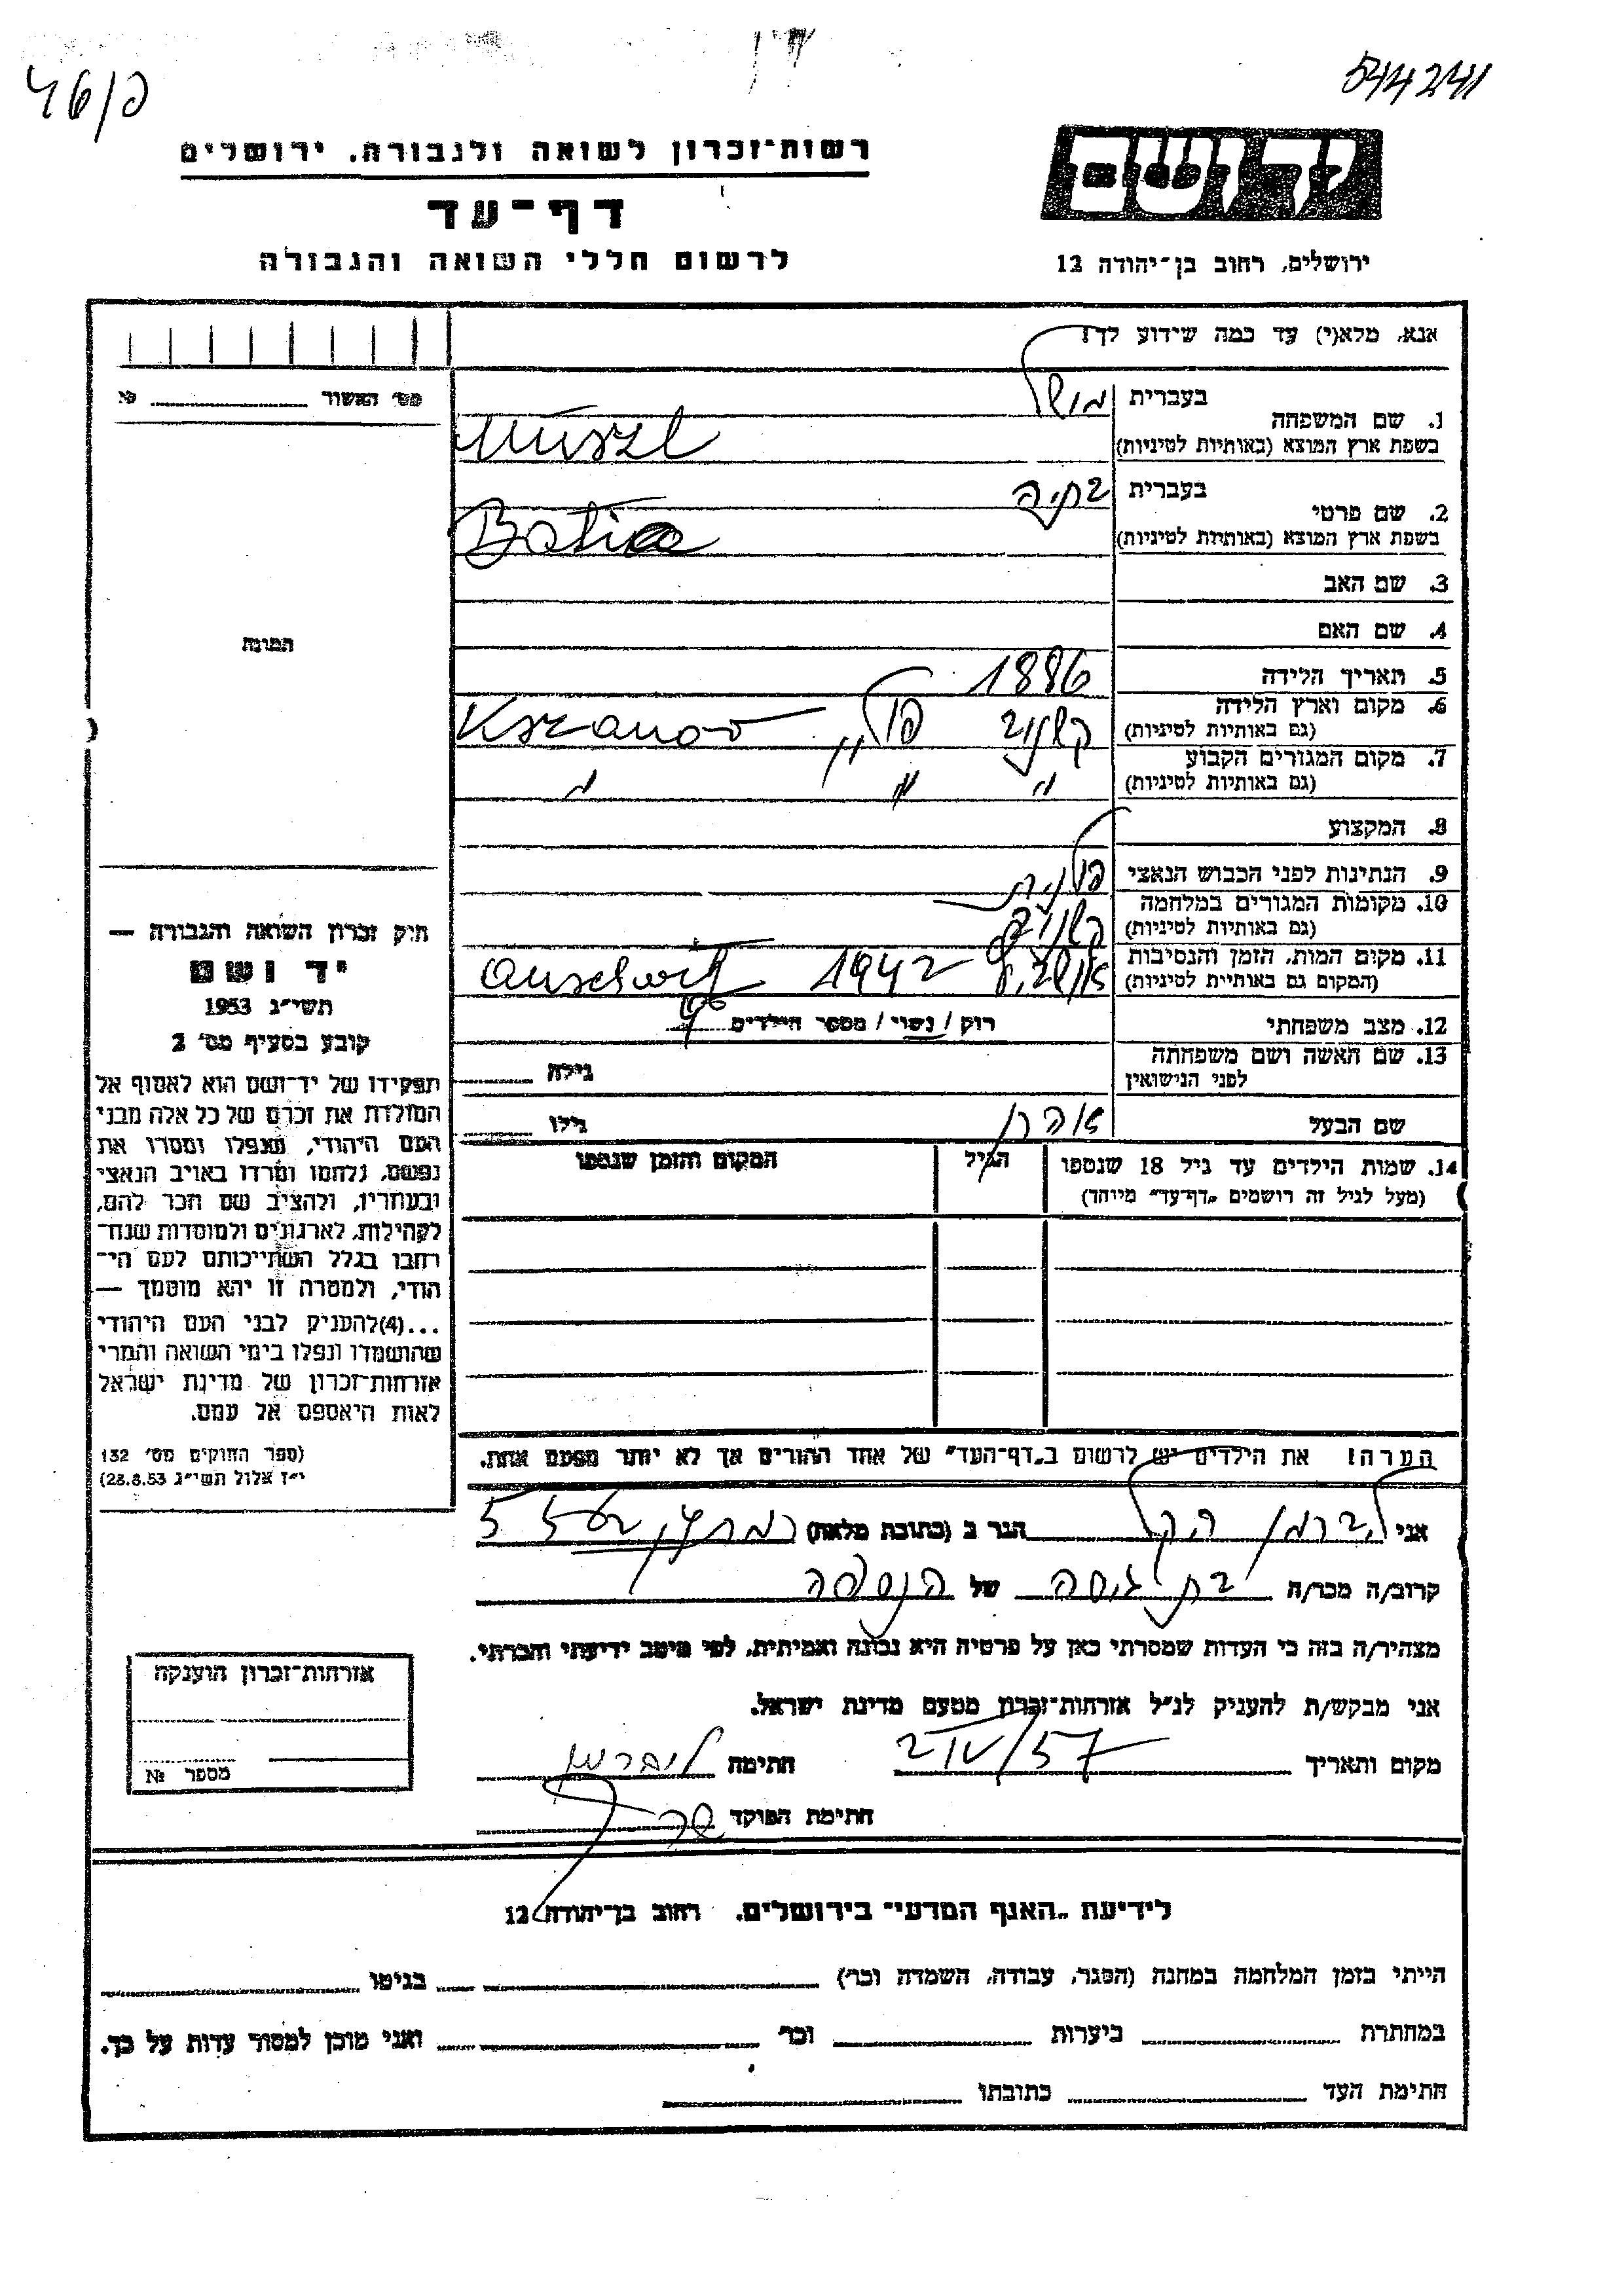 544241
46/פ
רשות־זכרון לשואה ולגבורה. ירושלים
דף־עד
לרשום חללי השואה והגבורה
ידושם
ירושלים, רחוב בן־יהודה 12
אנא, מלא(י) עד כמה שידוע לך!
מס׳ האשור №
1. שם המשפחה
בעברית מושל
בשפת ארץ המוצא (באותיות לטיניות) Muszl
2. שם פרטי
בעברית בתיה
בשפת ארץ המוצא (באותיות לטיניות)
3. שם האב
4. שם האם
5. תאריך הלידה 1886
6. מקום וארץ הלידה
(גם באותיות לטיניות) קשנוב פולין Kszanov
7. מקום המגורים הקבוע
(גם באותיות לטיניות) " " "
8. המקצוע
9. הנתינות לפני הכבוש הנאצי פולנית
10. מקומות המגורים במלחמה
(גם באותיות לטיניות) קשנוב
11. מקום המות, הזמן והנסיבות
(המקום גם באותיית לטיניות) 1942 Auschwitz
12. מצב משפחתי רוק / נשוי / מספר הילדים
13. שם האשה ושם משפחתה
לפני הנישואין גילה
שם הבעל אהרן גילו
14. שמות הילדים עד גיל 18 שנספו הגיל המקום והזמן שנספו
(מעל לגיל זה רושמים „דף־עד" מיוחד)
הערה! את הילדים יש לרשום ב„דף־העד" של אחד ההורים אך לא יותר מפעם אחת.
התמונה
חוק זכרון השואה והגבורה —
יד ושם
תשי״ג 1953
קובע בסעיף מס׳ 2
תפקידו של יד־ושם הוא לאסוף אל
המולדת את זכרם של כל אלה מבני
העם היהודי, שנפלו ומסרו את
נפשם, נלחמו ומרדו באויב הנאצי
ובעוזריו, ולהציב שם וזכר להם,
לקהילות, לארגונים ולמוסדות שנח־
רחבו בגלל השתייכותם לעם הי־
הודי, ולמטרה זו יהא מוסמך —
...(4)להעניק לבני העם היהודי
שהושמדו ונפלו בימי השואה והמרי
אזרחות־זכרון של מדינת ישראל
לאות היאספם אל עמם.
(ספר החוקים מס׳ 132
י״ז אלול תשי״ג 28.8.53)
אני הגר ב (כתובת מלאה)
קרוב/ה מכר/ה בת גיסה של הנספה
מצהיר/ה בזה כי העדות שמסרתי כאן על פרטיה היא נכונה ואמיתית, לפי מיטב ידיעתי והכרתי.
אני מבקש/ת להעניק לנ״ל אזרחות־זכרון מטעם מדינת ישראל.
מקום ותאריך 2/IV/57 חתימה
חתימת הפוקד
אזרחות־זכרון הוענקה
מספר №
לידיעת „האגף המדעי״ בירושלים. רחוב בן־יהודה 12
הייתי בזמן המלחמה במחנה (הסגר, עבודה, השמדה וכר׳) בגיטו
במחתרת ביערות וכר׳ ואני מוכן למסור עדות על כך.
חתימת העד כתובתו